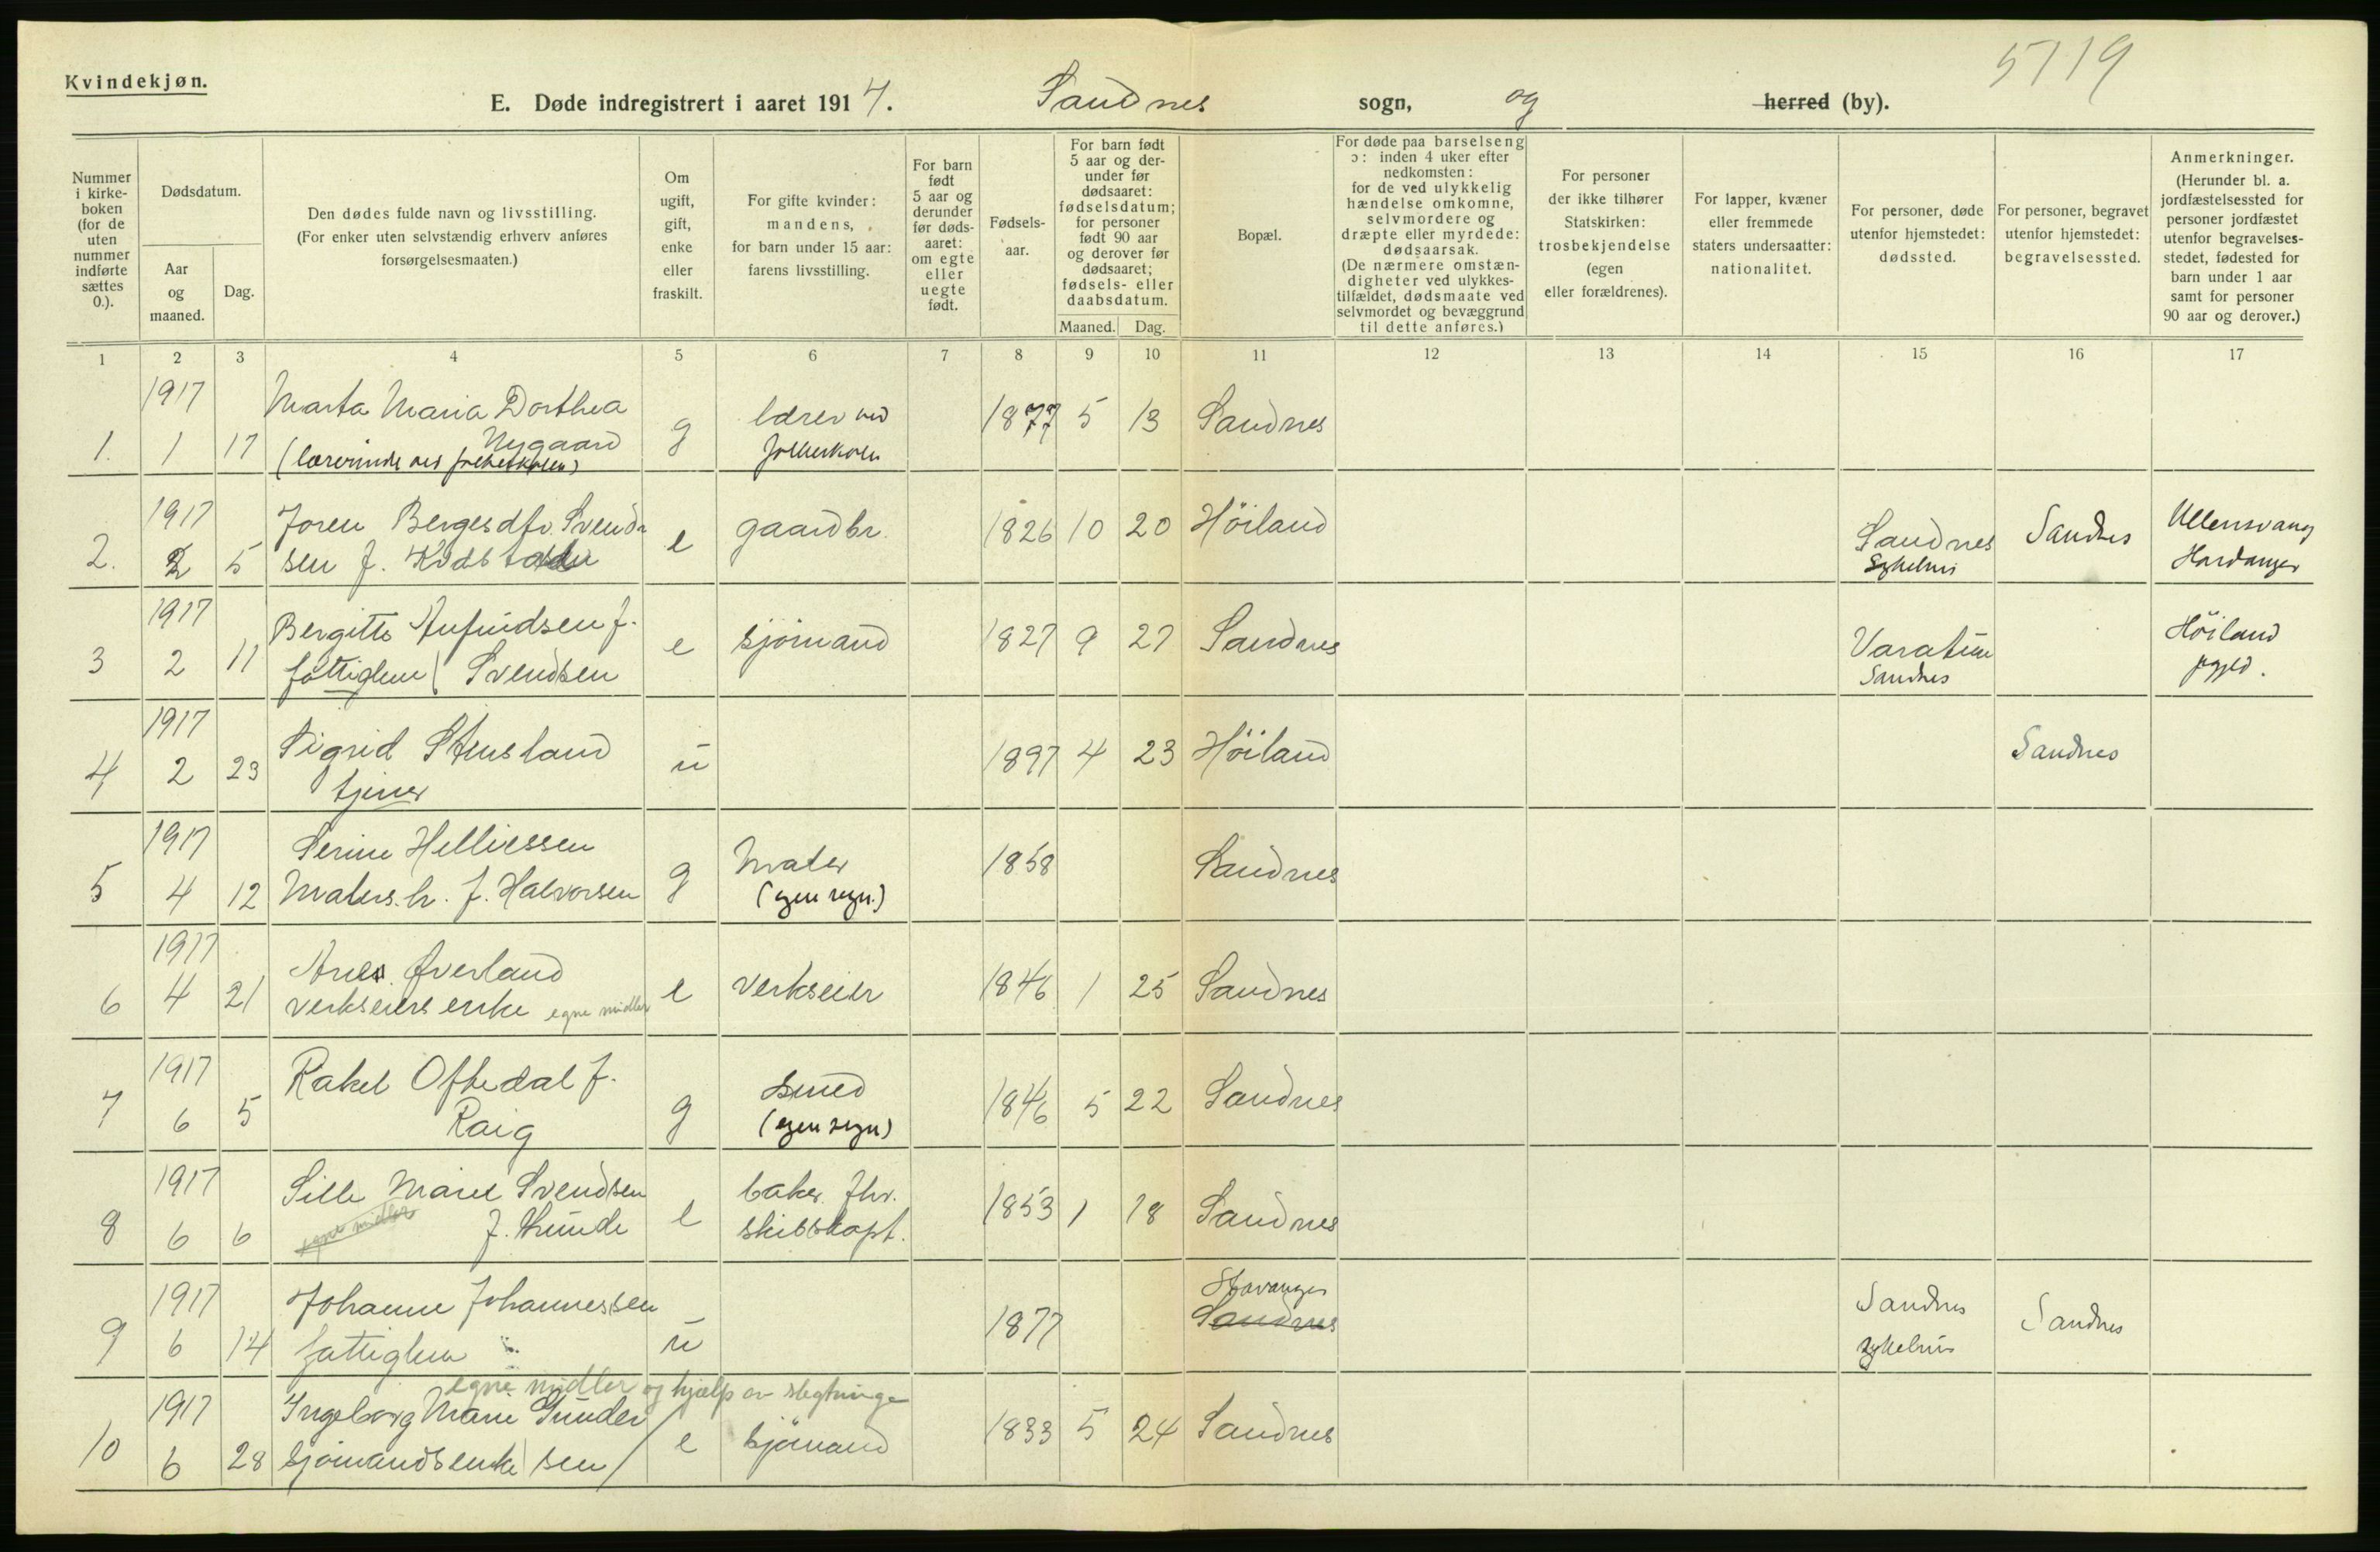 Kvindekjøn.
5719
E. Døde indregistrert i aaret 1917. Sandnes sogn, og herred (by).
Nummer i kirke-boken (for de uten nummer indførte sættes 0.).
Dødsdatum.
Aar og maaned.
Dag.
Den dødes fulde navn og livsstilling.
(For enker uten selvstændig erhverv anføres
forsørgelsesmaaten.)
Om ugift, gift, enke eller fraskilt.
For gifte kvinder: mandens, for barn under 15 aar: farens livsstilling.
For barn født 5 aar og derunder før døds-aaret: om egte eller uegte født.
Fødsels-aar.
For barn født 5 aar og der-under før dødsaaret: fødselsdatum; for personer født 90 aar og derover før dødsaaret; fødsels- eller daabsdatum.
Maaned. Dag.
Bopæl.
For døde paa barselseng ɔ: inden 4 uker efter nedkomsten: for de ved ulykkelig hændelse omkomne, selvmordere og dræpte eller myrdede: dødsaarsak. (De nærmere omstæn-digheter ved ulykkes-tilfældet, dødsmaate ved selvmordet og bevæggrund til dette anføres.)
For personer der ikke tilhører Statskirken: trosbekjendelse (egen eller forældrenes).
For lapper, kvæner eller fremmede staters undersaatter: nationalitet.
For personer, døde utenfor hjemstedet: dødssted.
For personer, begravet utenfor hjemstedet: begravelsessted.
Anmerkninger. (Herunder bl. a. jordfæstelsessted for personer jordfæstet utenfor begravelses-stedet, fødested for barn under 1 aar samt for personer 90 aar og derover.)
1 2 3 4 5 6 7 8 9 10 11 12 13 14 15 16 17
1917 Marta Maria Dorthea lærer ved
1. 1 17 Nygaard g folkeskolen 1877 5 13 Sandnes
(lærerinde ved folkeskolen)
1917 Joren Bergesdtr. Svend- Ullensvang
2. 2 5 sen f. e gaardbr. 1826 10 20 Höiland Sandnes Sandnes Hardanger
Sykehus
1917 Bergitte Anfindsen f. Höiland
3 2 11 fattiglem ( Svendsen e sjömand 1827 9 27 Sandnes Varatun pgjld.
Sandnes
1917 Sigrid Stensland
4 2 23 tjener ü 1897 4 23 Höiland Sandnes
1917 Serine Helliessen Maler
5 4 12 Malers. h. f. Halvorsen g (egen regn.) 1858 Sandnes
1917 Ane Øverland
6 4 21 verkseiers enke egne midler e verkseier 1846 1 25 Sandnes
1917 Rakel Oftedal f. smed
7 6 5 Raig g (egen regn) 1846 5 22 Sandnes
1917 Sille Marie Svendsen baker fhv.
8 6 6 egne midler f. Lunde e skibskapt. 1853 1 18 Sandnes
1917 Johanne Johannessen Stavanger Sandnes
9 6 14 fattiglem ü 1877 Sandnes sykehus Sandnes
egne midler og hjælp av slegtninge
1917 Ingeborg Marie Gunder
10 6 28 sjömands enke sen e sjömand 1833 5 24 Sandnes